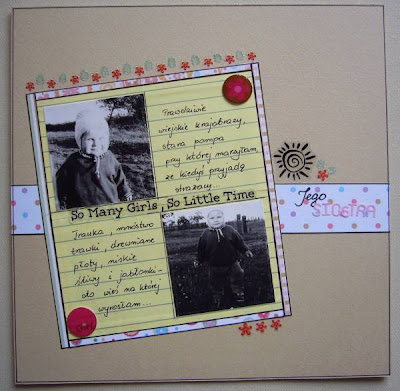 Prawdziwie
wiejskie krajobrazy,
stara pompa
przy której marzyłam
że kiedyś przyjadą
strażacy...
So Many Girls, So Little Time
Trawka, mnóstwo
trawki, drewniane
płoty, niskie
śliwy i jabłonki -
to wieś na której
wyrosłam...
Jego
SIOSTRA